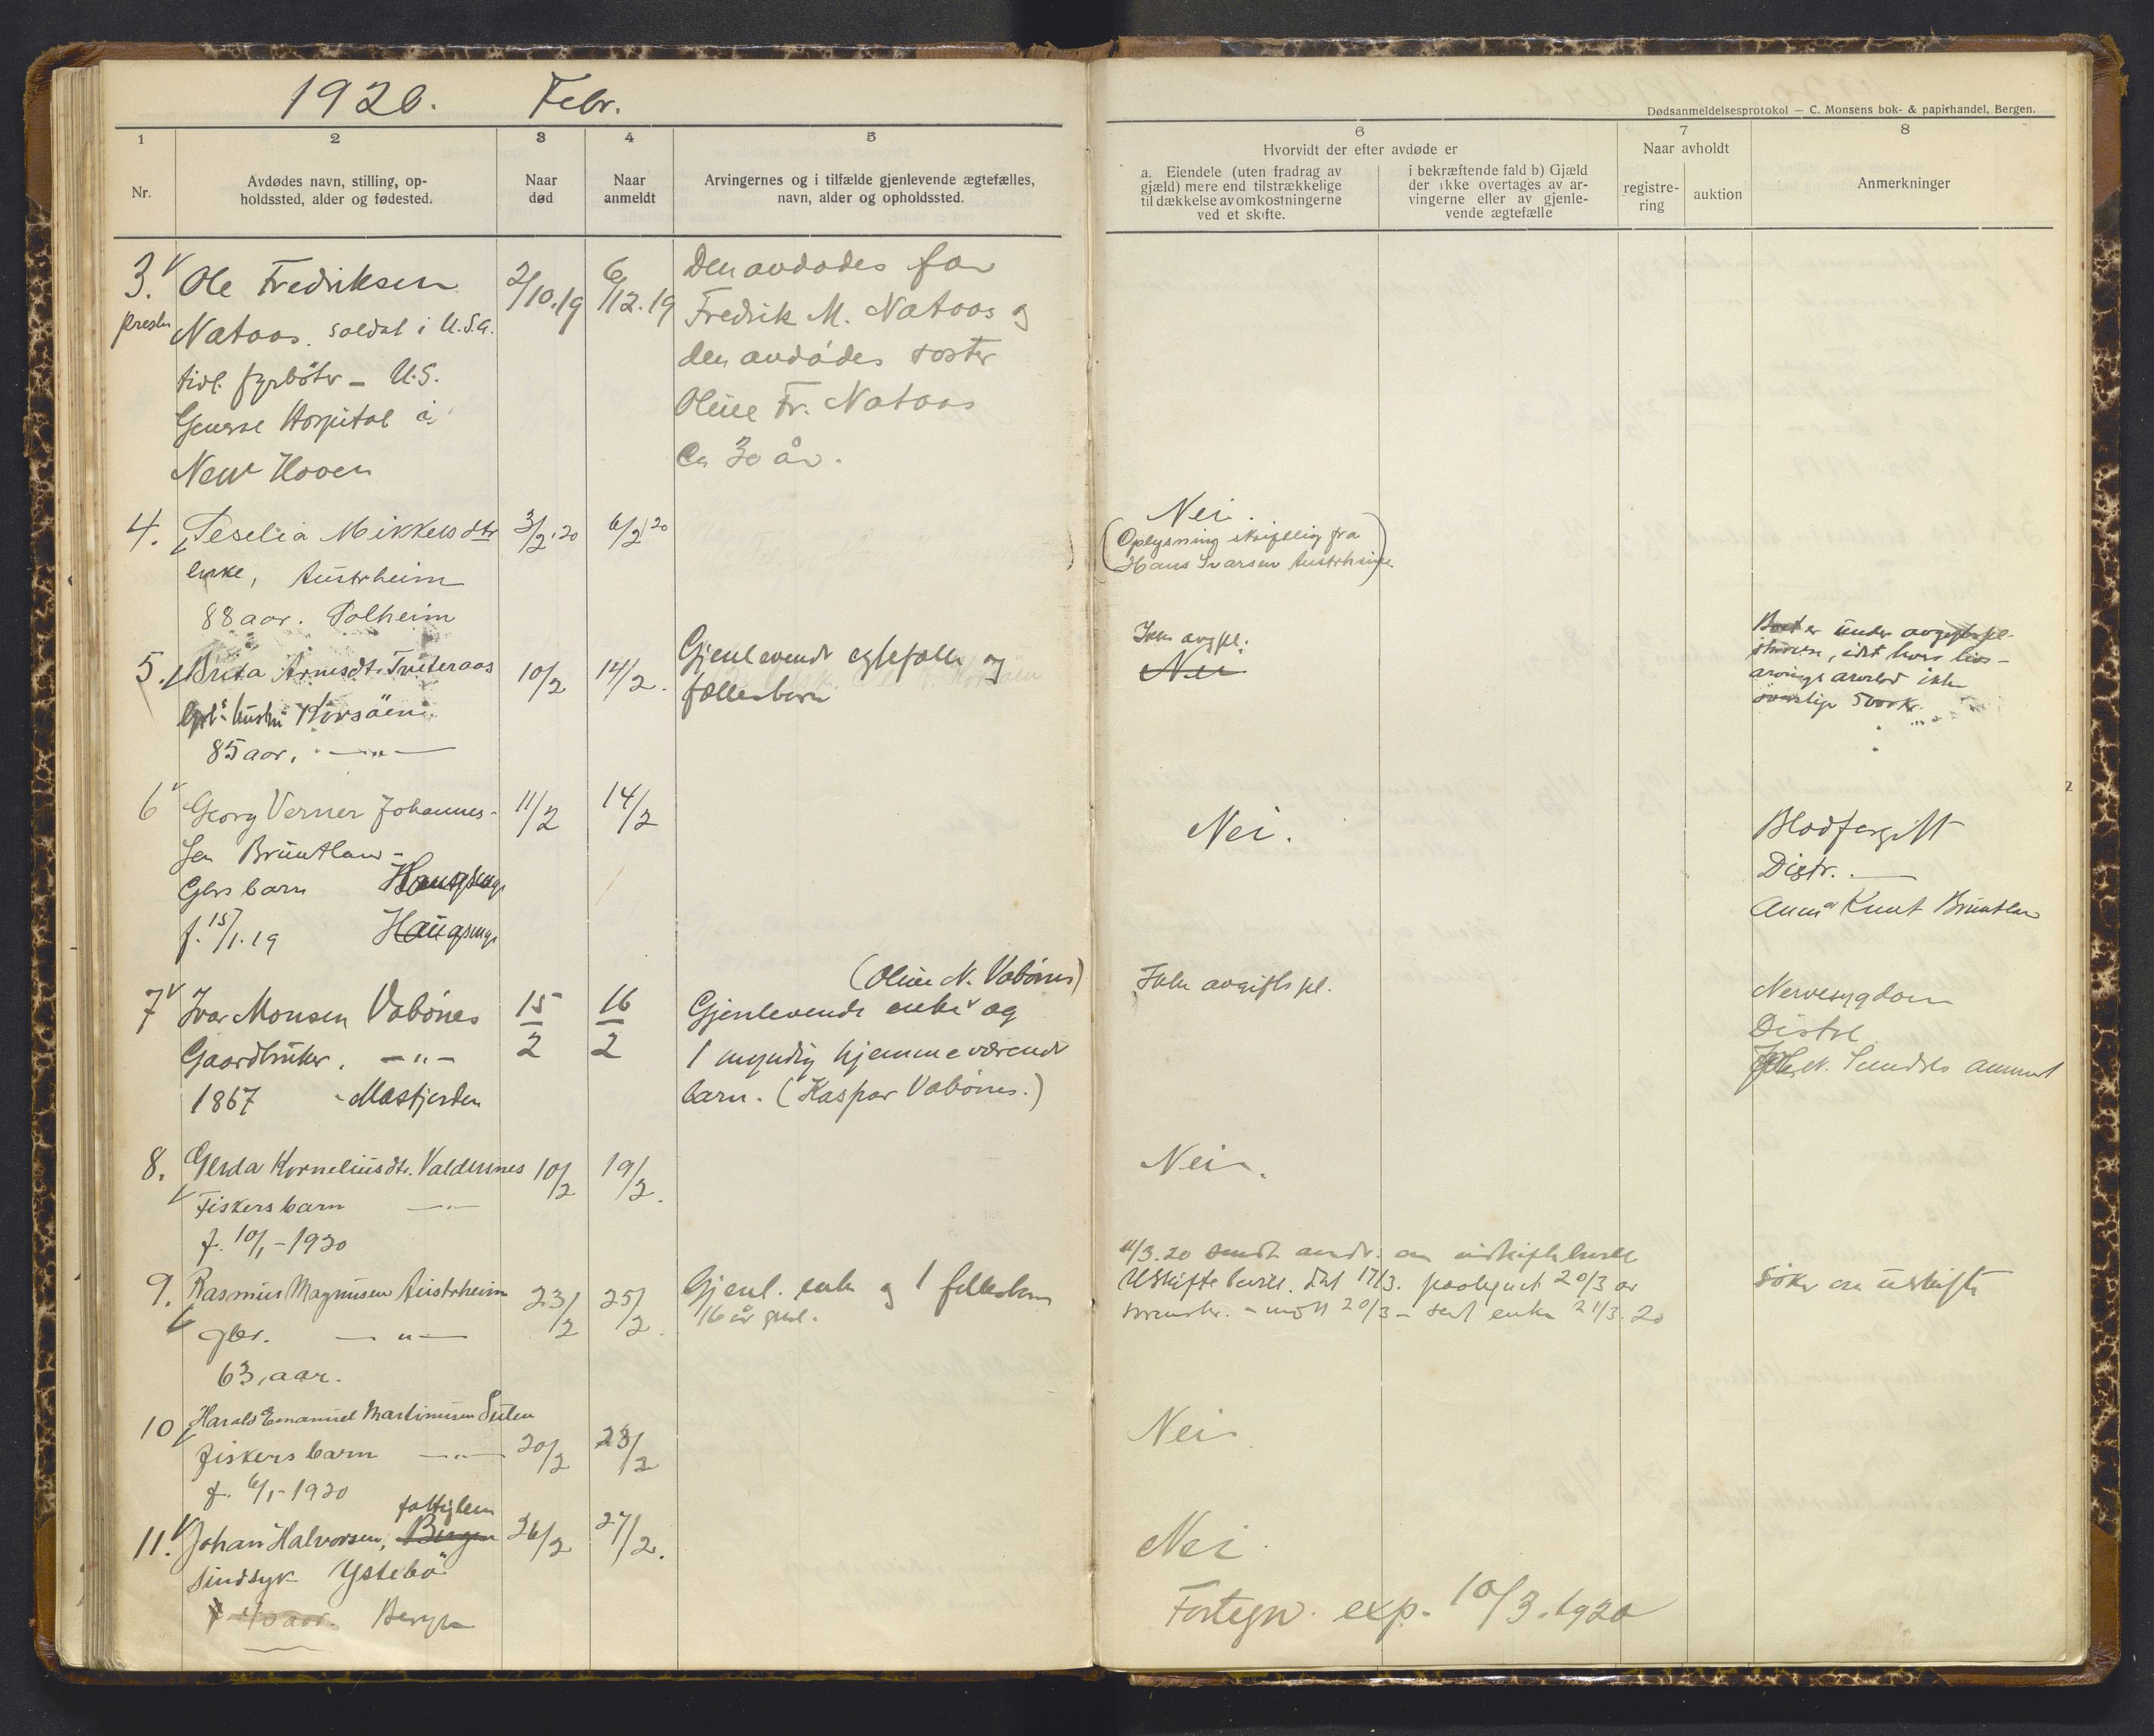 1920. Febr.
Dødsanmeldelsesprotokol — C. Monsens bok- & papirhandel, Bergen.
1
2
3
4
5
6
7
8
Nr.
Avdødes navn, stilling, op-
holdssted, alder og fødested.
Naar
død
Naar
anmeldt
Arvingernes og i tilfælde gjenlevende ægtefælles,
navn, alder og opholdssted.
Hvorvidt der efter avdøde er
a. Eiendele (uten fradrag av
gjæld) mere end tilstrækkelige
til dækkelse av omkostningerne
ved et skifte.
i bekræftende fald b) Gjæld
der ikke overtages av ar-
vingerne eller av gjenle-
vende ægtefælle
Naar avholdt
registre-
ring
auktion
Anmerkninger
3.
Ole Fredriksen
Nataas. soldat i U.S.A.
tidl. fyrböter – U.S.
General Hospital i
New Haven
2/10.19
6/12.19
Den avdødes far
Fredrik M. Nataas og
den avdødes søster
Oline Fr. Nataas
Ca 30 år.
4. Teselia Mikkelsdtr
enke, Austrheim
88 aar. Solheim
3/2.20
6/2 20
Nei.
(Oplysning skriftlig fra
Hans Ivarsen Austrheim)
5. Brita Arnesdtr. Tveteraas
hustru Korsöen
85 aar. —"—
10/2
14/2.
Gjenlevende egtefælle og
fællesbarn
Ikke avgpl.
Nei
Boet er under
5000 kr.
6 Georg Verner Johannes-
sen Bruntland
Gbrs barn
f. 15/1.19
11/2
14/2
Nei.
Blodforgift
Distr. —
Knut
7 Ivar Monsen Vabönes
Gaardbruker. —"—
1867 Masfjorden
15/2
16/2
(Oline N. Vabönes)
Gjenlevende enke og
1 myndig hjemmeværende
barn. (Kaspar Vabönes.)
Ikke avgifts pl.
Nervesygdom
Distr.
8. Gerda Korneliusdtr. Valdersnes
Fiskers barn —"—
f. 10/1–1920
10/2
19/2.
Nei.
9. Rasmus Magnusen Austrheim
gbr. —"—
63 aar.
23/2
25/2.
Gjenl. enke og 1 fellesbarn
16 år gml.
11/3.20 sendt
Uskifte bevill. dat 17/3. paategnet 20/3 av
sorenskr. – 20/3 – sent enken 21/3.20
Söker om uskifte
10 Harald Emanuel Martinusen
fiskers barn —"—
f. 6/1–1920
20/2
28/2
Nei
11. Johan Halvorsen, fattiglem
Bergen
sindsyk Ystebö
40 aar. Bergen
26/2
27/2.
Nei
Fortegn. exp. 10/3.1920